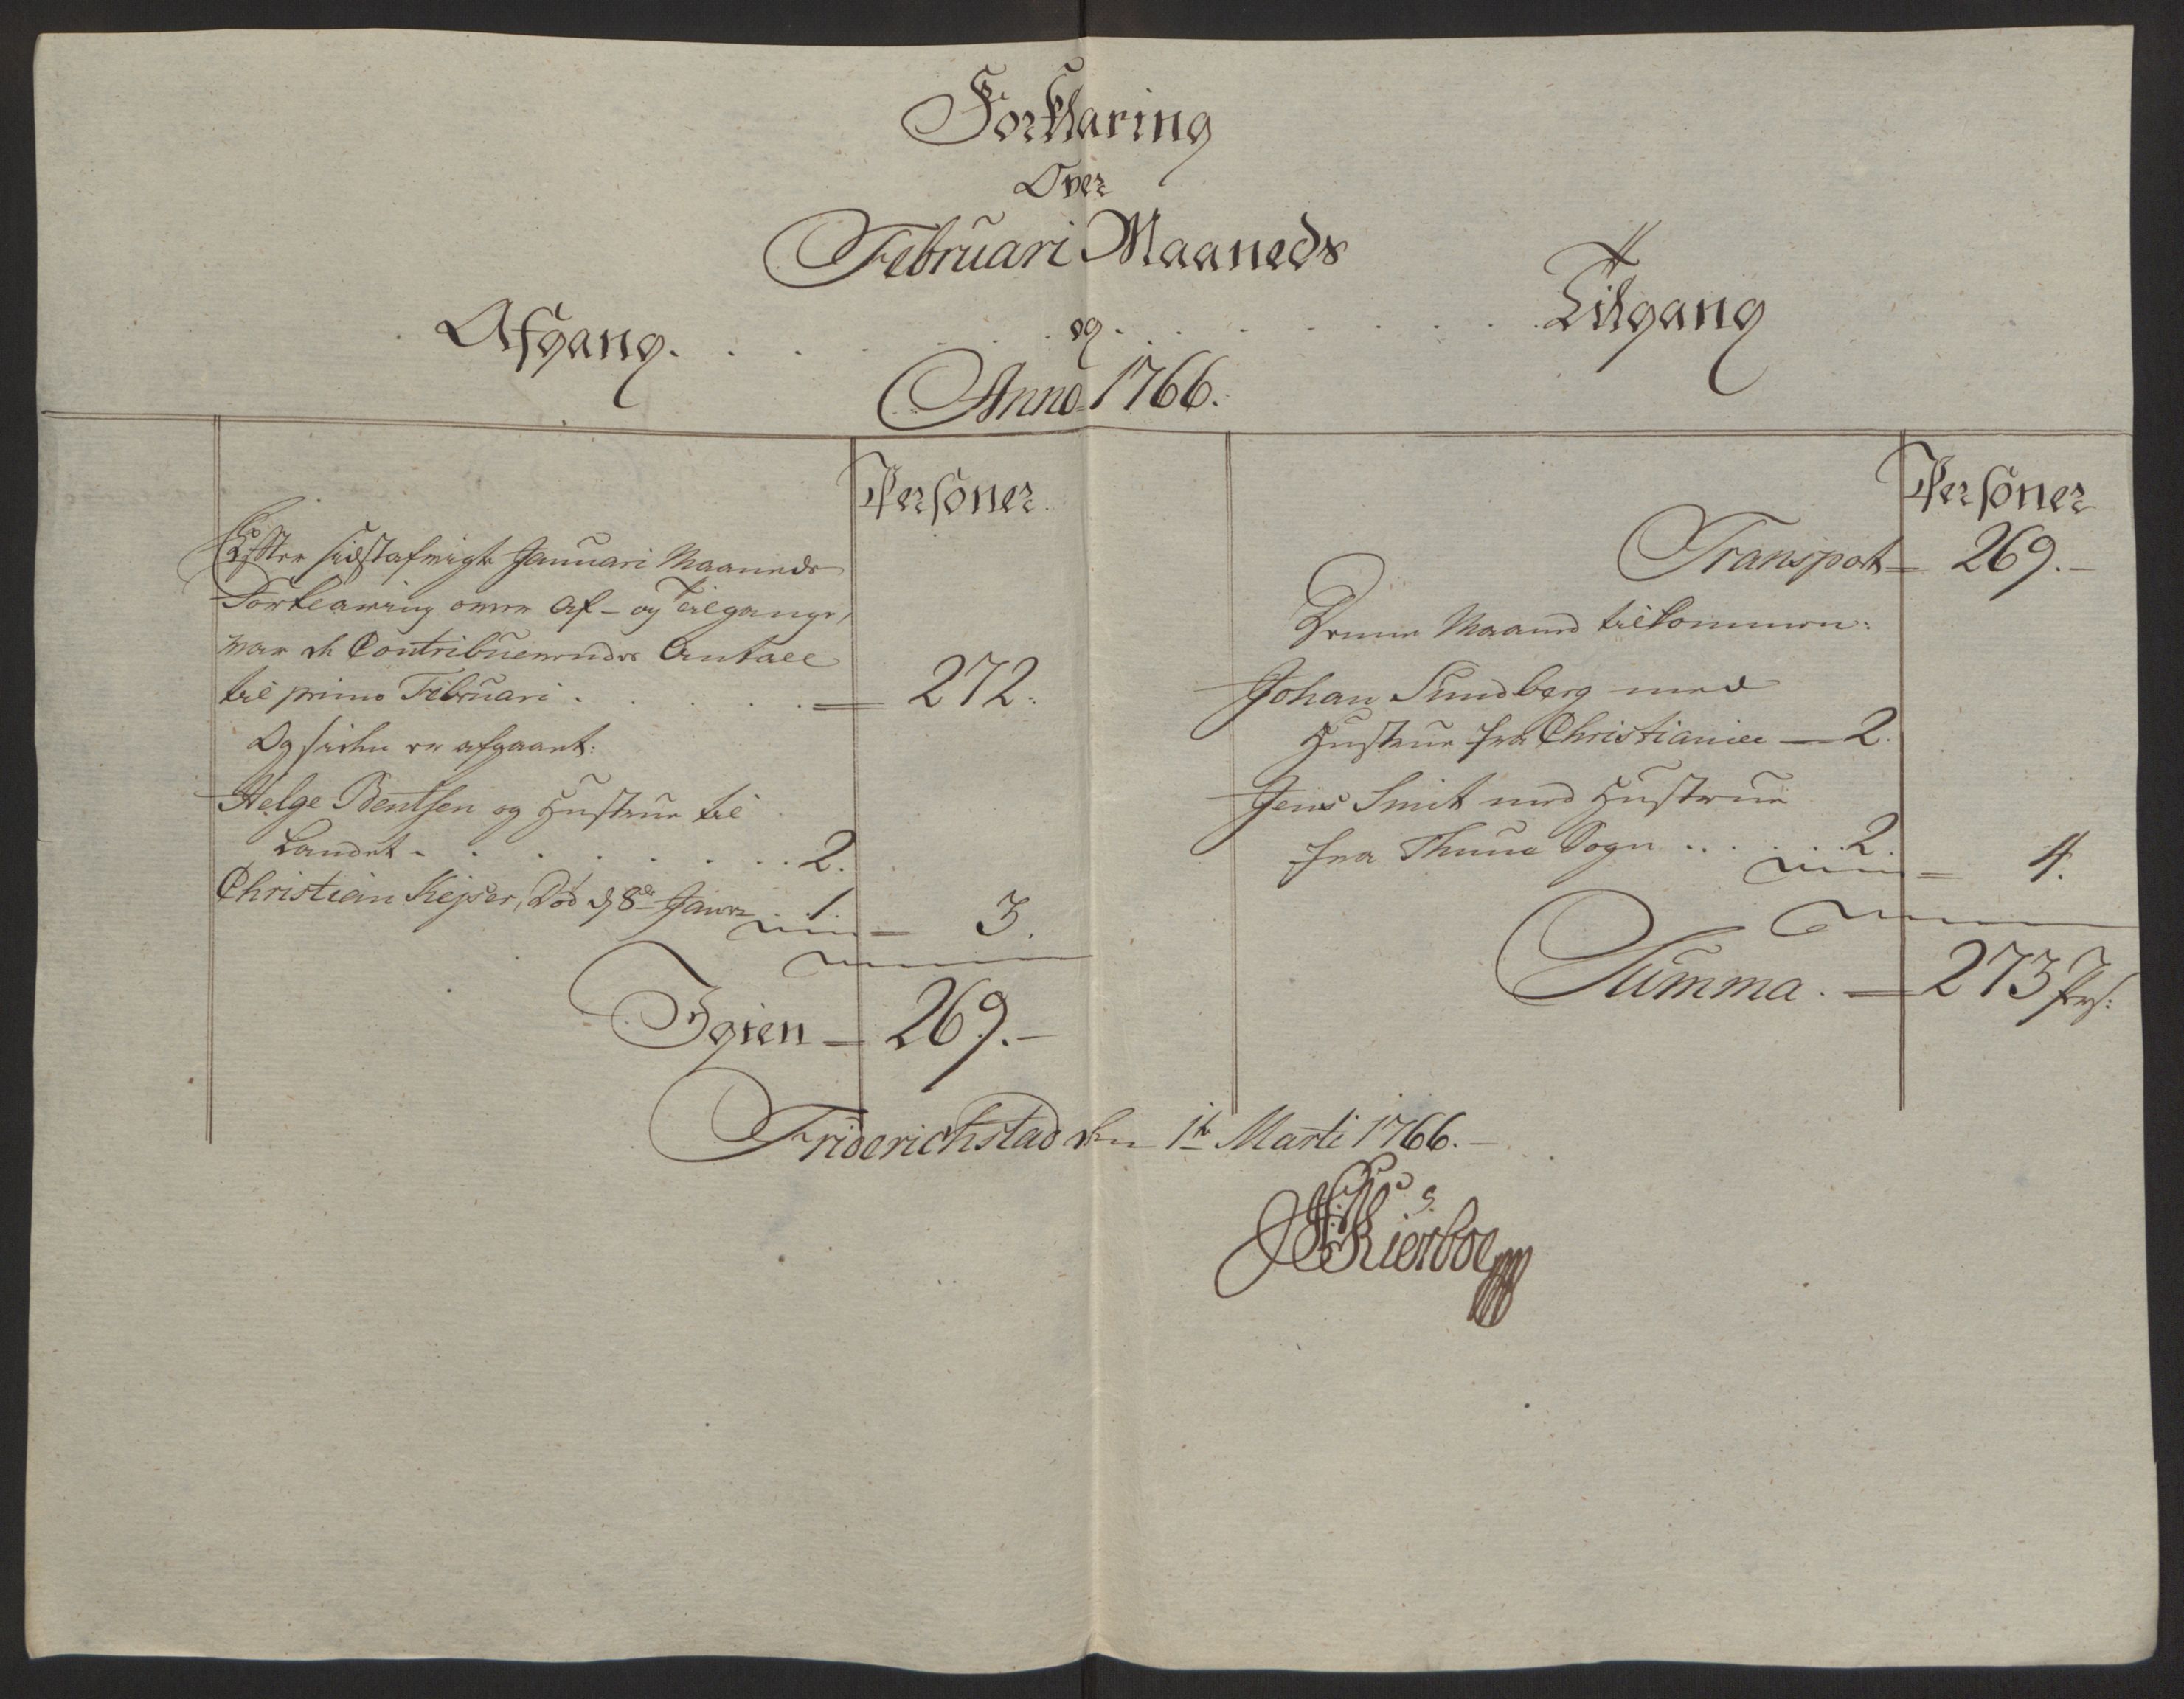 Forklaring
Over
Februari Maaneds
Afgang. . . . . . . og . . . . . . . Tilgang
Anno 1766.
Personer.
Efter sidstafvigte Januari Maaneds
Forklaring over Af- og Tilgange,
var de Contribuerendes Antall
til primo Februari . . . . . = 272.
Og siden er afgaaet:
Helge Bentsen og Hustrue til
Landet - . . . . . . . 2.
Christian Kejser, Död d 8de Janvr . 1. = 3.
Igien = 269.-
Personer
Transport = 269.-
Denne Maaned tilkommen:
Johan Sundberg med
Hustrue fra Christiania — 2.
Jens Smit med Hustrue
fra Thune Sogn . . . . . 2. = 4.
Summa. = 273 Prs:
Friderichstad den 1te Marti 1766.-
Kierboe